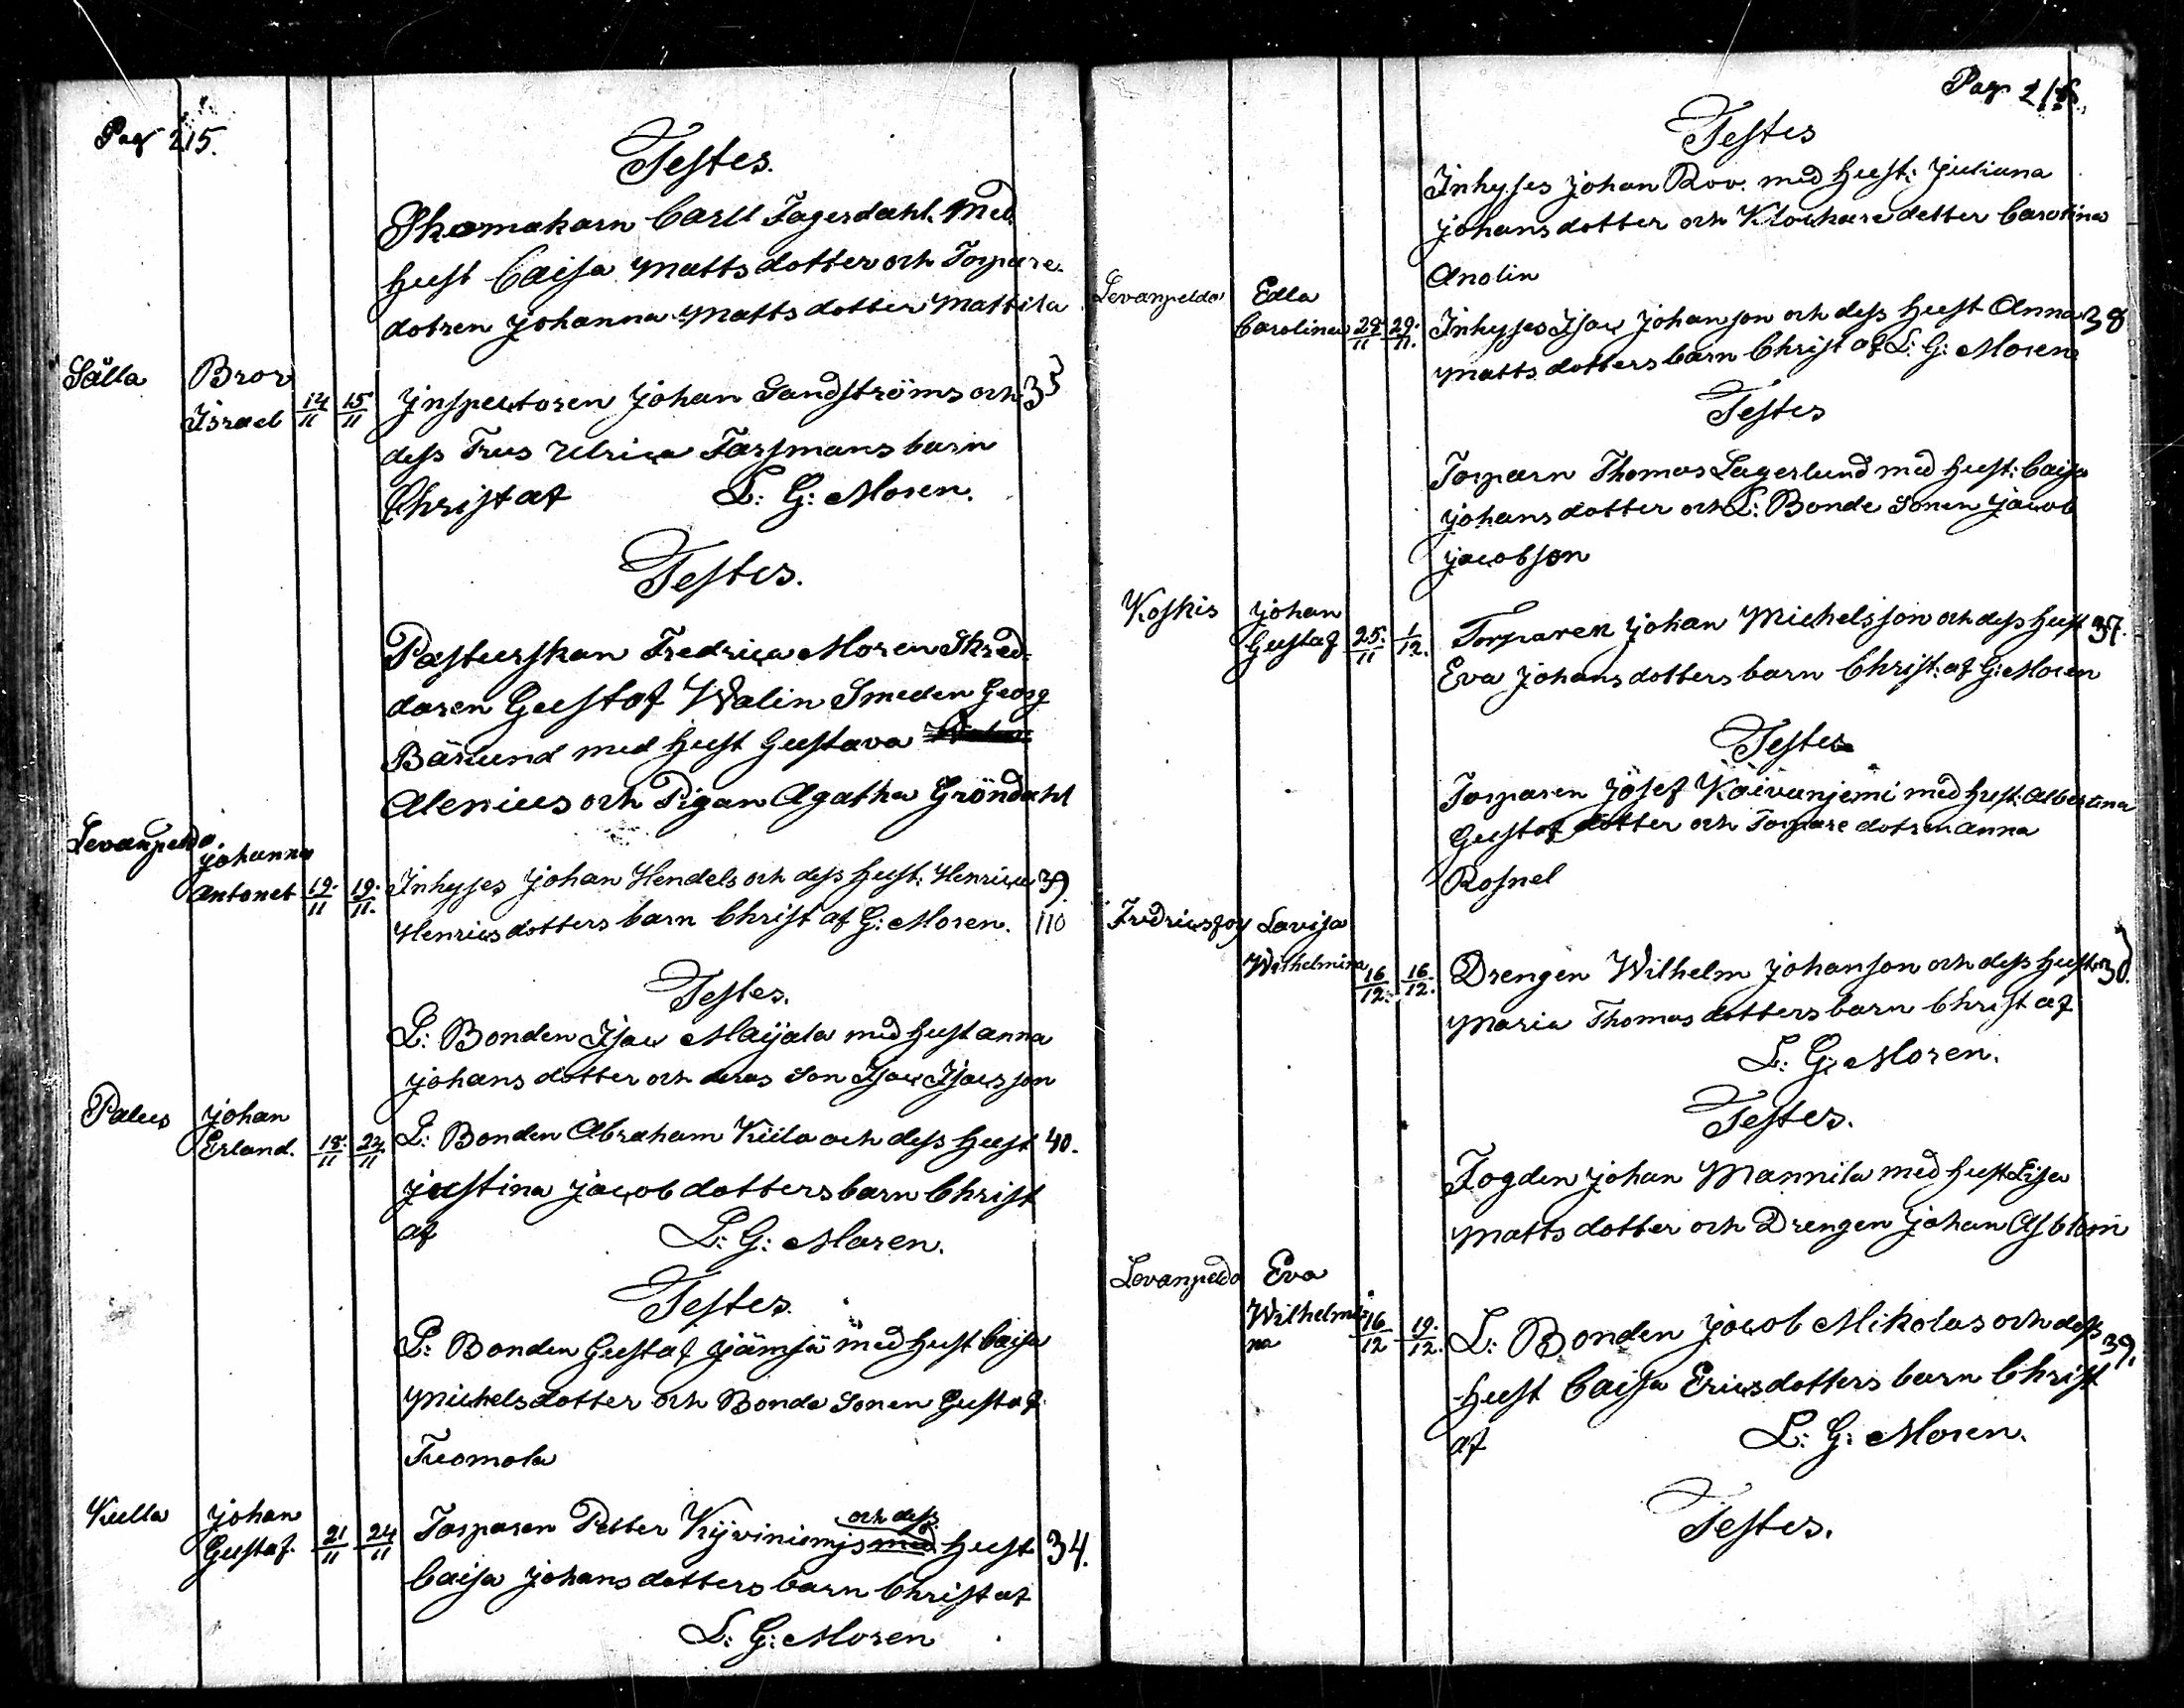 Pag 215.
Testes.
Skomakarn Carll Fagerdahl Med
hust Caisa Mattsdotter och Torpare
dotren Johanna Mattsdotter Mattila
Sälla Bror
Israel 14/11 15/11 Inspectoren Johan Sandströms och 35
dess Frus Ulrica Forsmans barn
Christ af L: G: Moren.
Testes.
Pastorskan Fredrica Moren Skred-
daren Gustaf Walin Smeden Georg
Bärlund med hust Gustava
Alenius och Pigan Agatha Gröndahl
Levanpeldo. Johanna
Antonet 19./11 19./11. Inhyses Johan Hendels och dess hust: Henrica 39.
Henricsdotters barn Christ af G: Moren. 110
Testes.
L: Bonden Isac Maijala med hust Anna
Johansdotter och deras Son Isac Isacsson
Palus Johan
Erland. 18./11 22/11 L: Bonden Abraham Kiila och dess hust 40.
Justina Jacobdotters barn Christ
af L: G: Moren.
Testes.
L: Bonden Gustaf Jämsä med hust Caisa
Michelsdotter och Bonde Sonen Gustaf
Tuomola
Kulla Johan
Gustaf. 21/11 24/11 Torparen Petter Kyviniemis med och dess hust 34.
Caisa Johansdotters barn Christ af
L: G: Moren
Pag 216.
Testes
Inhyses Johan Roo. med hust: Juliana
Johansdotter och Klockaredotter Carolina
Anolin
Levanpeldo Edla
Carolina 29/11 29./11. Inhyses Isac Johanson och dess hust Anna 38
Mattsdotters barn Christ af L: G: Moren
Testes
Torparn Thomas Lagerlund med hust: Caisa
Johansdotter och L: Bonde Sonen Jacob
Jacobson
Koskis Johan
Gustaf 25./11 1/12. Torparen Johan Michelsson och dess hust 37.
Eva Johansdotters barn Christ: af G: Moren
Testes
Torparen Josef Koivuniemi med hust: Albertina
Gustafdotter och Torpare dotren Anna
Rosnel
Fredricsfors Lovisa
Wilhelmina 16/12. 16./12. Drengen Wilhelm Johanson och dess hust 38.
Maria Thomasdotters barn Christ af
L: G: Moren.
Testes.
Fogden Johan Mannila med hust Lisa
Mattsdotter och Drengen Johan Asblom
Levanpeldo Eva
Wilhelmi-
na 16/12 19./12. L: Bonden Jacob Mikolas och dess 39.
hust Caisa Ericsdotters barn Christ
af L: G: Moren.
Testes.